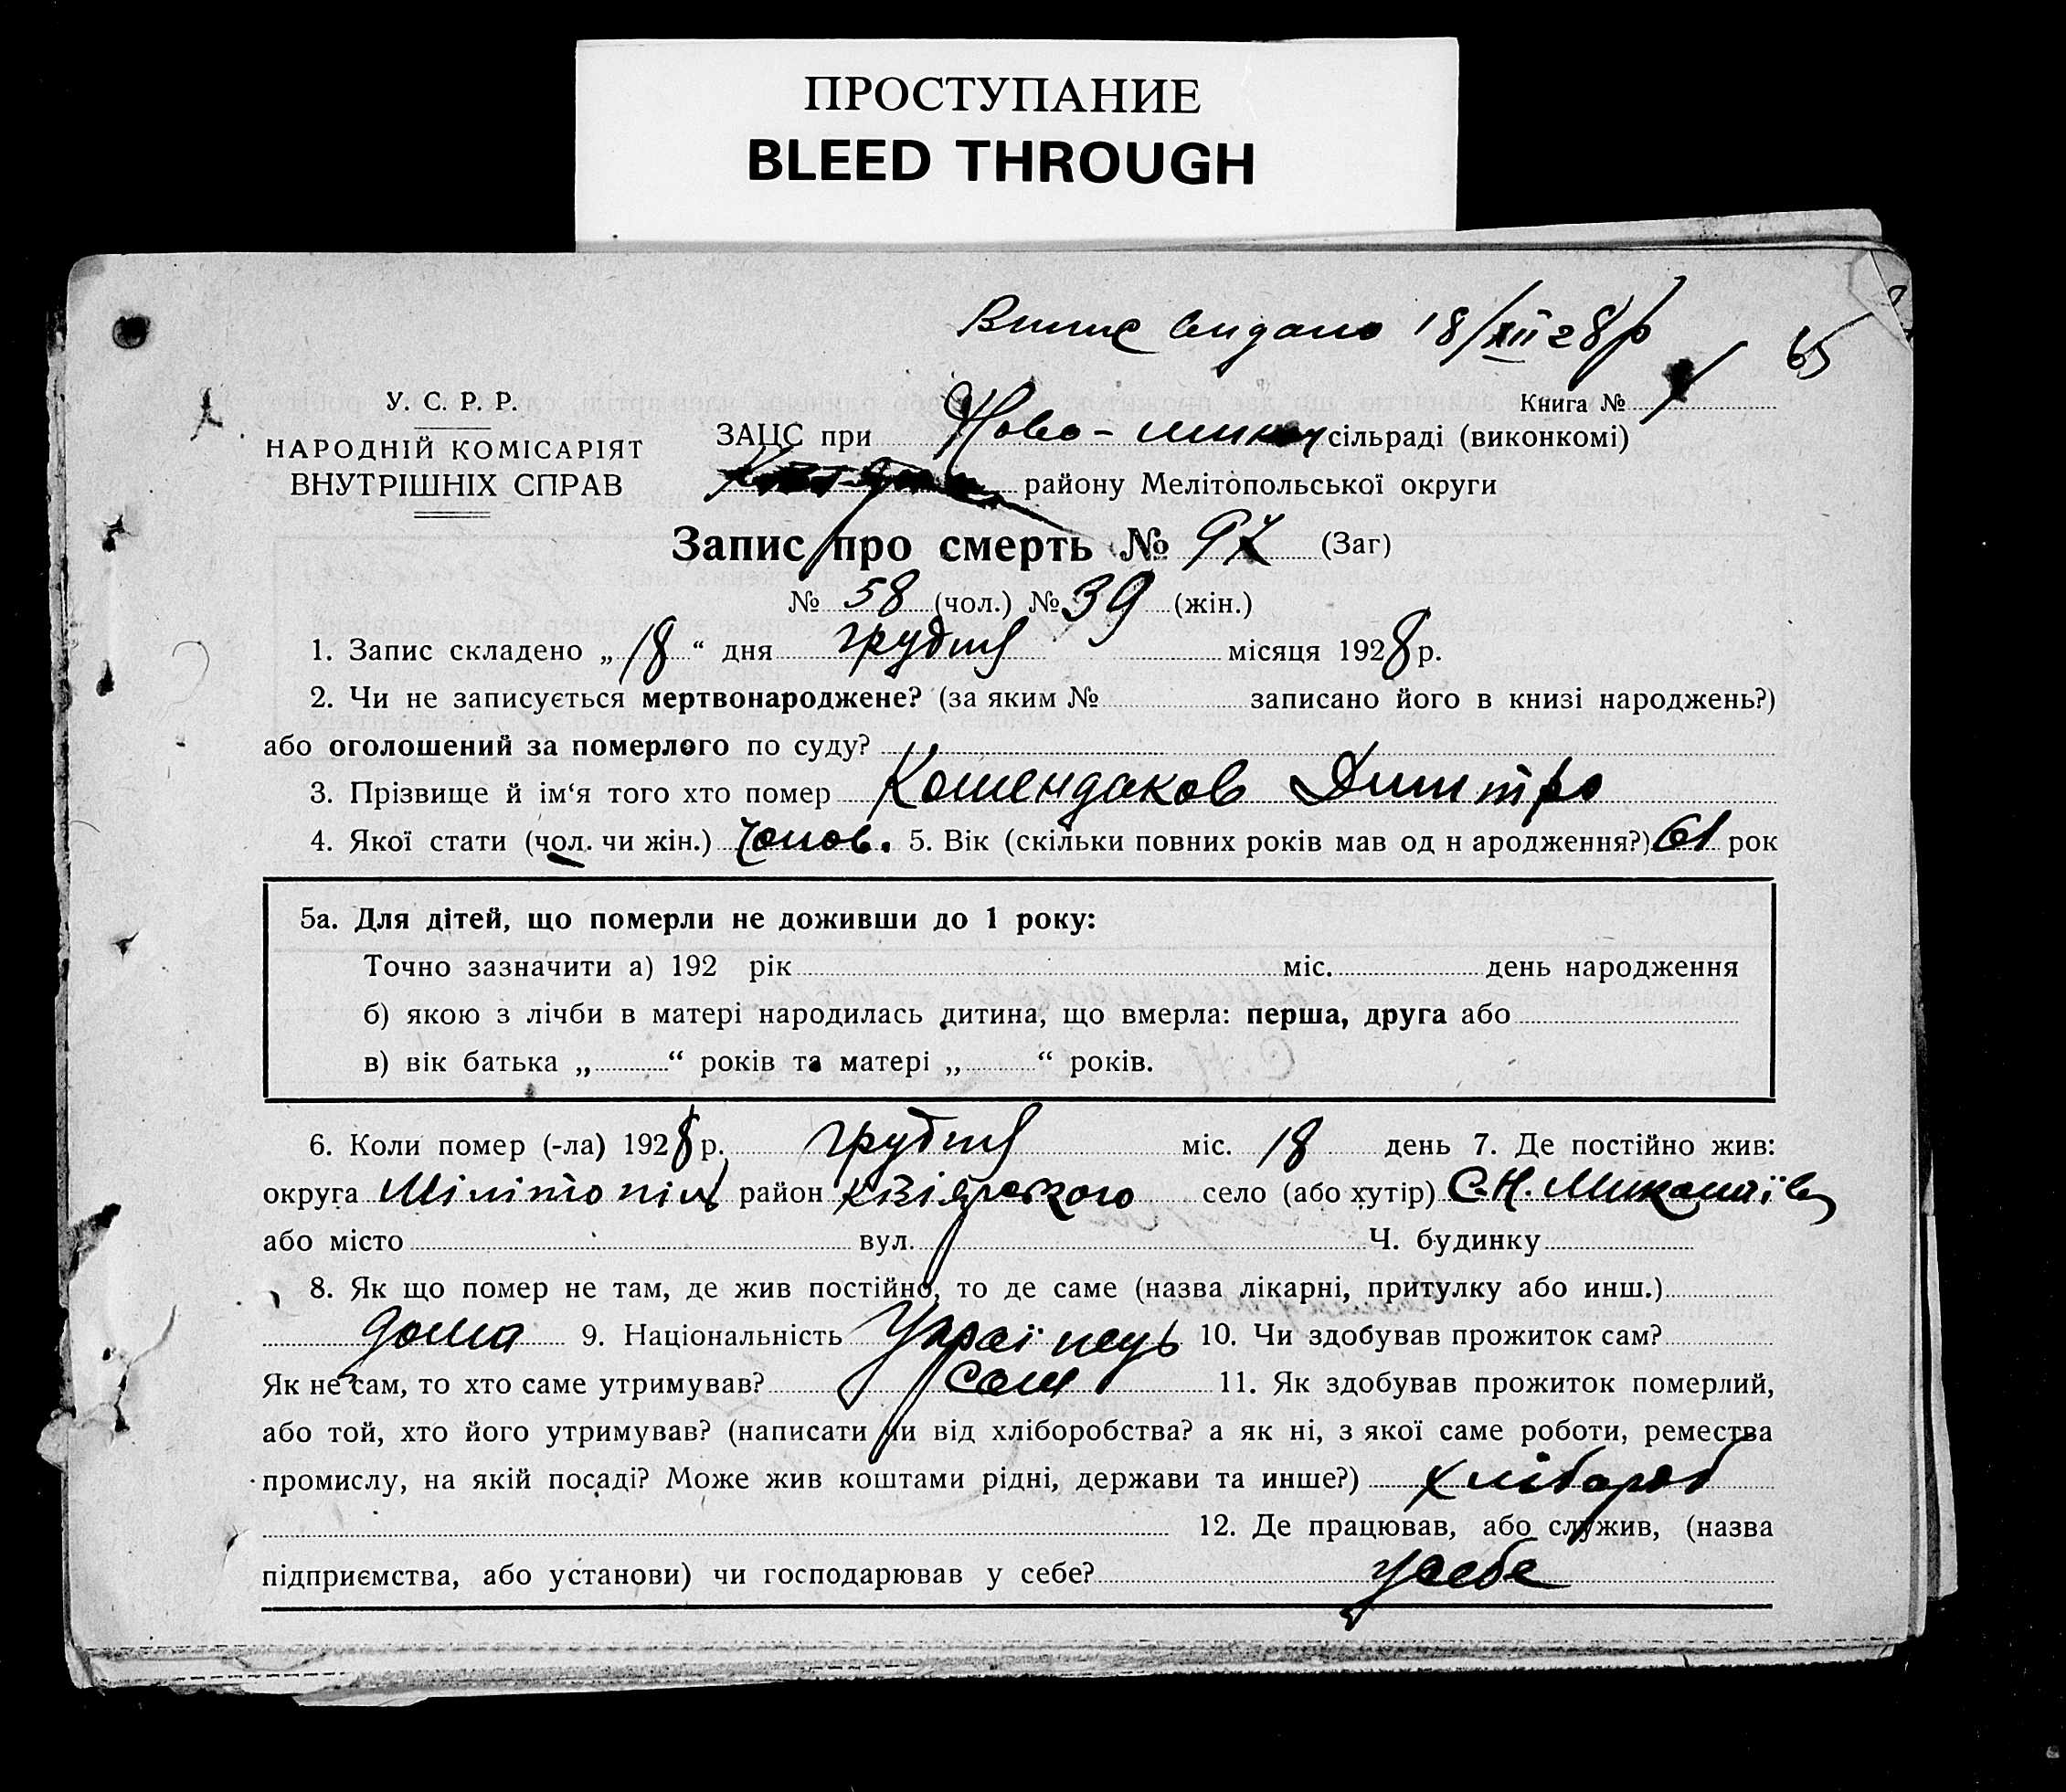 ПРОСТУПАНИЕ
BLEED THROUGH
видано 18/XII 28 р
65
У. С. Р. Р.
НАРОДНІЙ КОМІСАРІЯТ
ВНУТРІШНІХ СПРАВ
Книга № 1
ЗАЦС при Ново- сільраді (виконкомі)
району Мелітопольської округи
Запис про смерть № 97 (Заг)
№ 58 (чол.) № 39 (жін.)
1. Запис складено „ 18 “ дня грудня місяця 1928 р.
2. Чи не записується мертвонароджене? (за яким № записано його в книзі народжень?)
або оголошений за померлого по суду?
3. Прізвище й ім‘я того хто помер Комендаков Дмитро
4. Якої стати (чол. чи жін.) чолов. 5. Вік (скільки повних років мав од н ародження?) 61 рок
5а. Для дітей, що померли не доживши до 1 року:
Точно зазначити а) 192 рік міс. день народження
б) якою з лічби в матері народилась дитина, що вмерла: перша, друга або
в) вік батька „ “ років та матері „ “ років.
6. Коли помер (-ла) 1928 р. грудня міс. 18 день 7. Де постійно жив:
округа район село (або хутір) С.Н. Миколаїв
або місто вул. Ч. будинку
8. Як що помер не там, де жив постійно, то де саме (назва лікарні, притулку або инш.)
дома 9. Національність Українець 10. Чи здобував прожиток сам?
Як не сам, то хто саме утримував? Сам 11. Як здобував прожиток померлий,
або той, хто його утримував? (написати чи від хліборобства? а як ні, з якої саме роботи, ремества
промислу, на якій посаді? Може жив коштами рідні, держави та инше?) хлібороб
12. Де працював, або служив, (назва
підприємства, або установи) чи господарював у себе? у себе